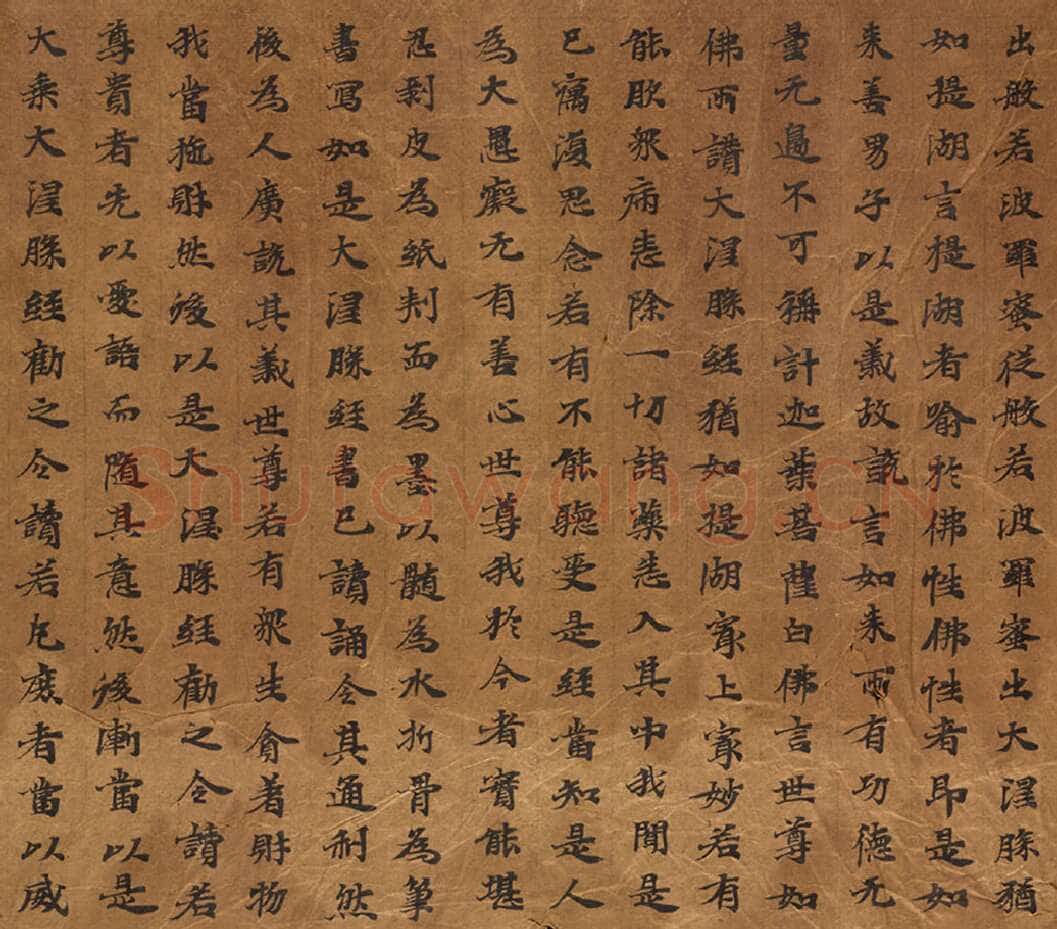 出般若波羅蜜從般若波羅蜜出大涅槃猶
如提湖言提湖者喻於佛性佛性者即是如
来善男子以是義故說言如来所有功德无
量无邊不可稱計迦葉菩薩白佛言世尊如
佛所讚大涅槃經猶如提湖冣上冣妙若有
能飲衆病悉除一切諸藥悉入其中我聞是
已竊復思念若有不能聽受是經當知是人
為大愚癡无有善心世尊我於今者實能堪
忍剥皮為紙刺血為墨以髓為水折骨為筆
書寫如是大涅槃經書已讀誦令其通利然
後為人廣說其義世尊若有衆生貪著財物
我當施財然後以是大涅槃經勸之令讀若
尊貴者先以愛語而随其意然後漸當以是
大乘大涅槃經勸之令讀若凡庶者當以威
Shufawang.CN